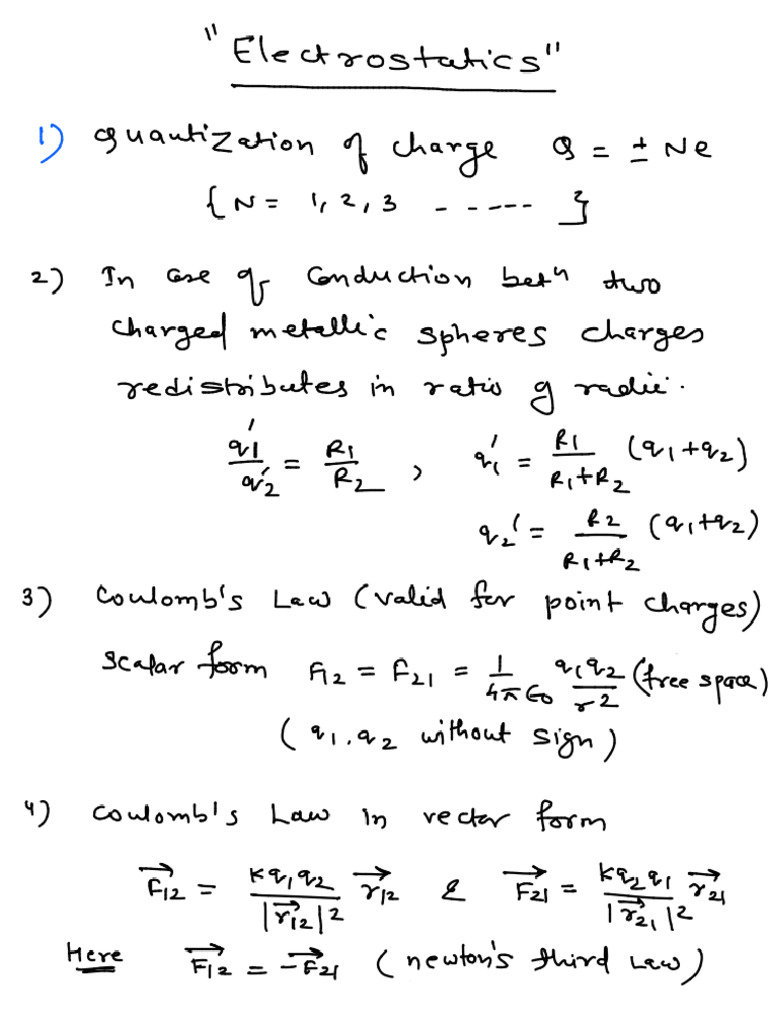 "Electrostatics"
1) Quantization of charge Q = ± Ne
{ N = 1, 2, 3 - - - - - - }
2) In case of Conduction betⁿ two
charged metallic spheres charges
redistributes in ratio of radii.
q₁'/q₂' = R₁/R₂ , q₁' = R₁/(R₁+R₂) (q₁+q₂)
q₂' = R₂/(R₁+R₂) (q₁+q₂)
3) Coulomb's Law (valid for point charges)
Scalar form F₁₂ = F₂₁ = 1/4πϵ₀ q₁q₂/r² (free space)
( q₁, q₂ without sign )
4) Coulomb's Law in vector form
F⃗₁₂ = Kq₁q₂/|r⃗₁₂|² r⃗₁₂ & F⃗₂₁ = Kq₂q₁/|r⃗₂₁|² r⃗₂₁
Here F⃗₁₂ = -F⃗₂₁ ( newton's third Law )